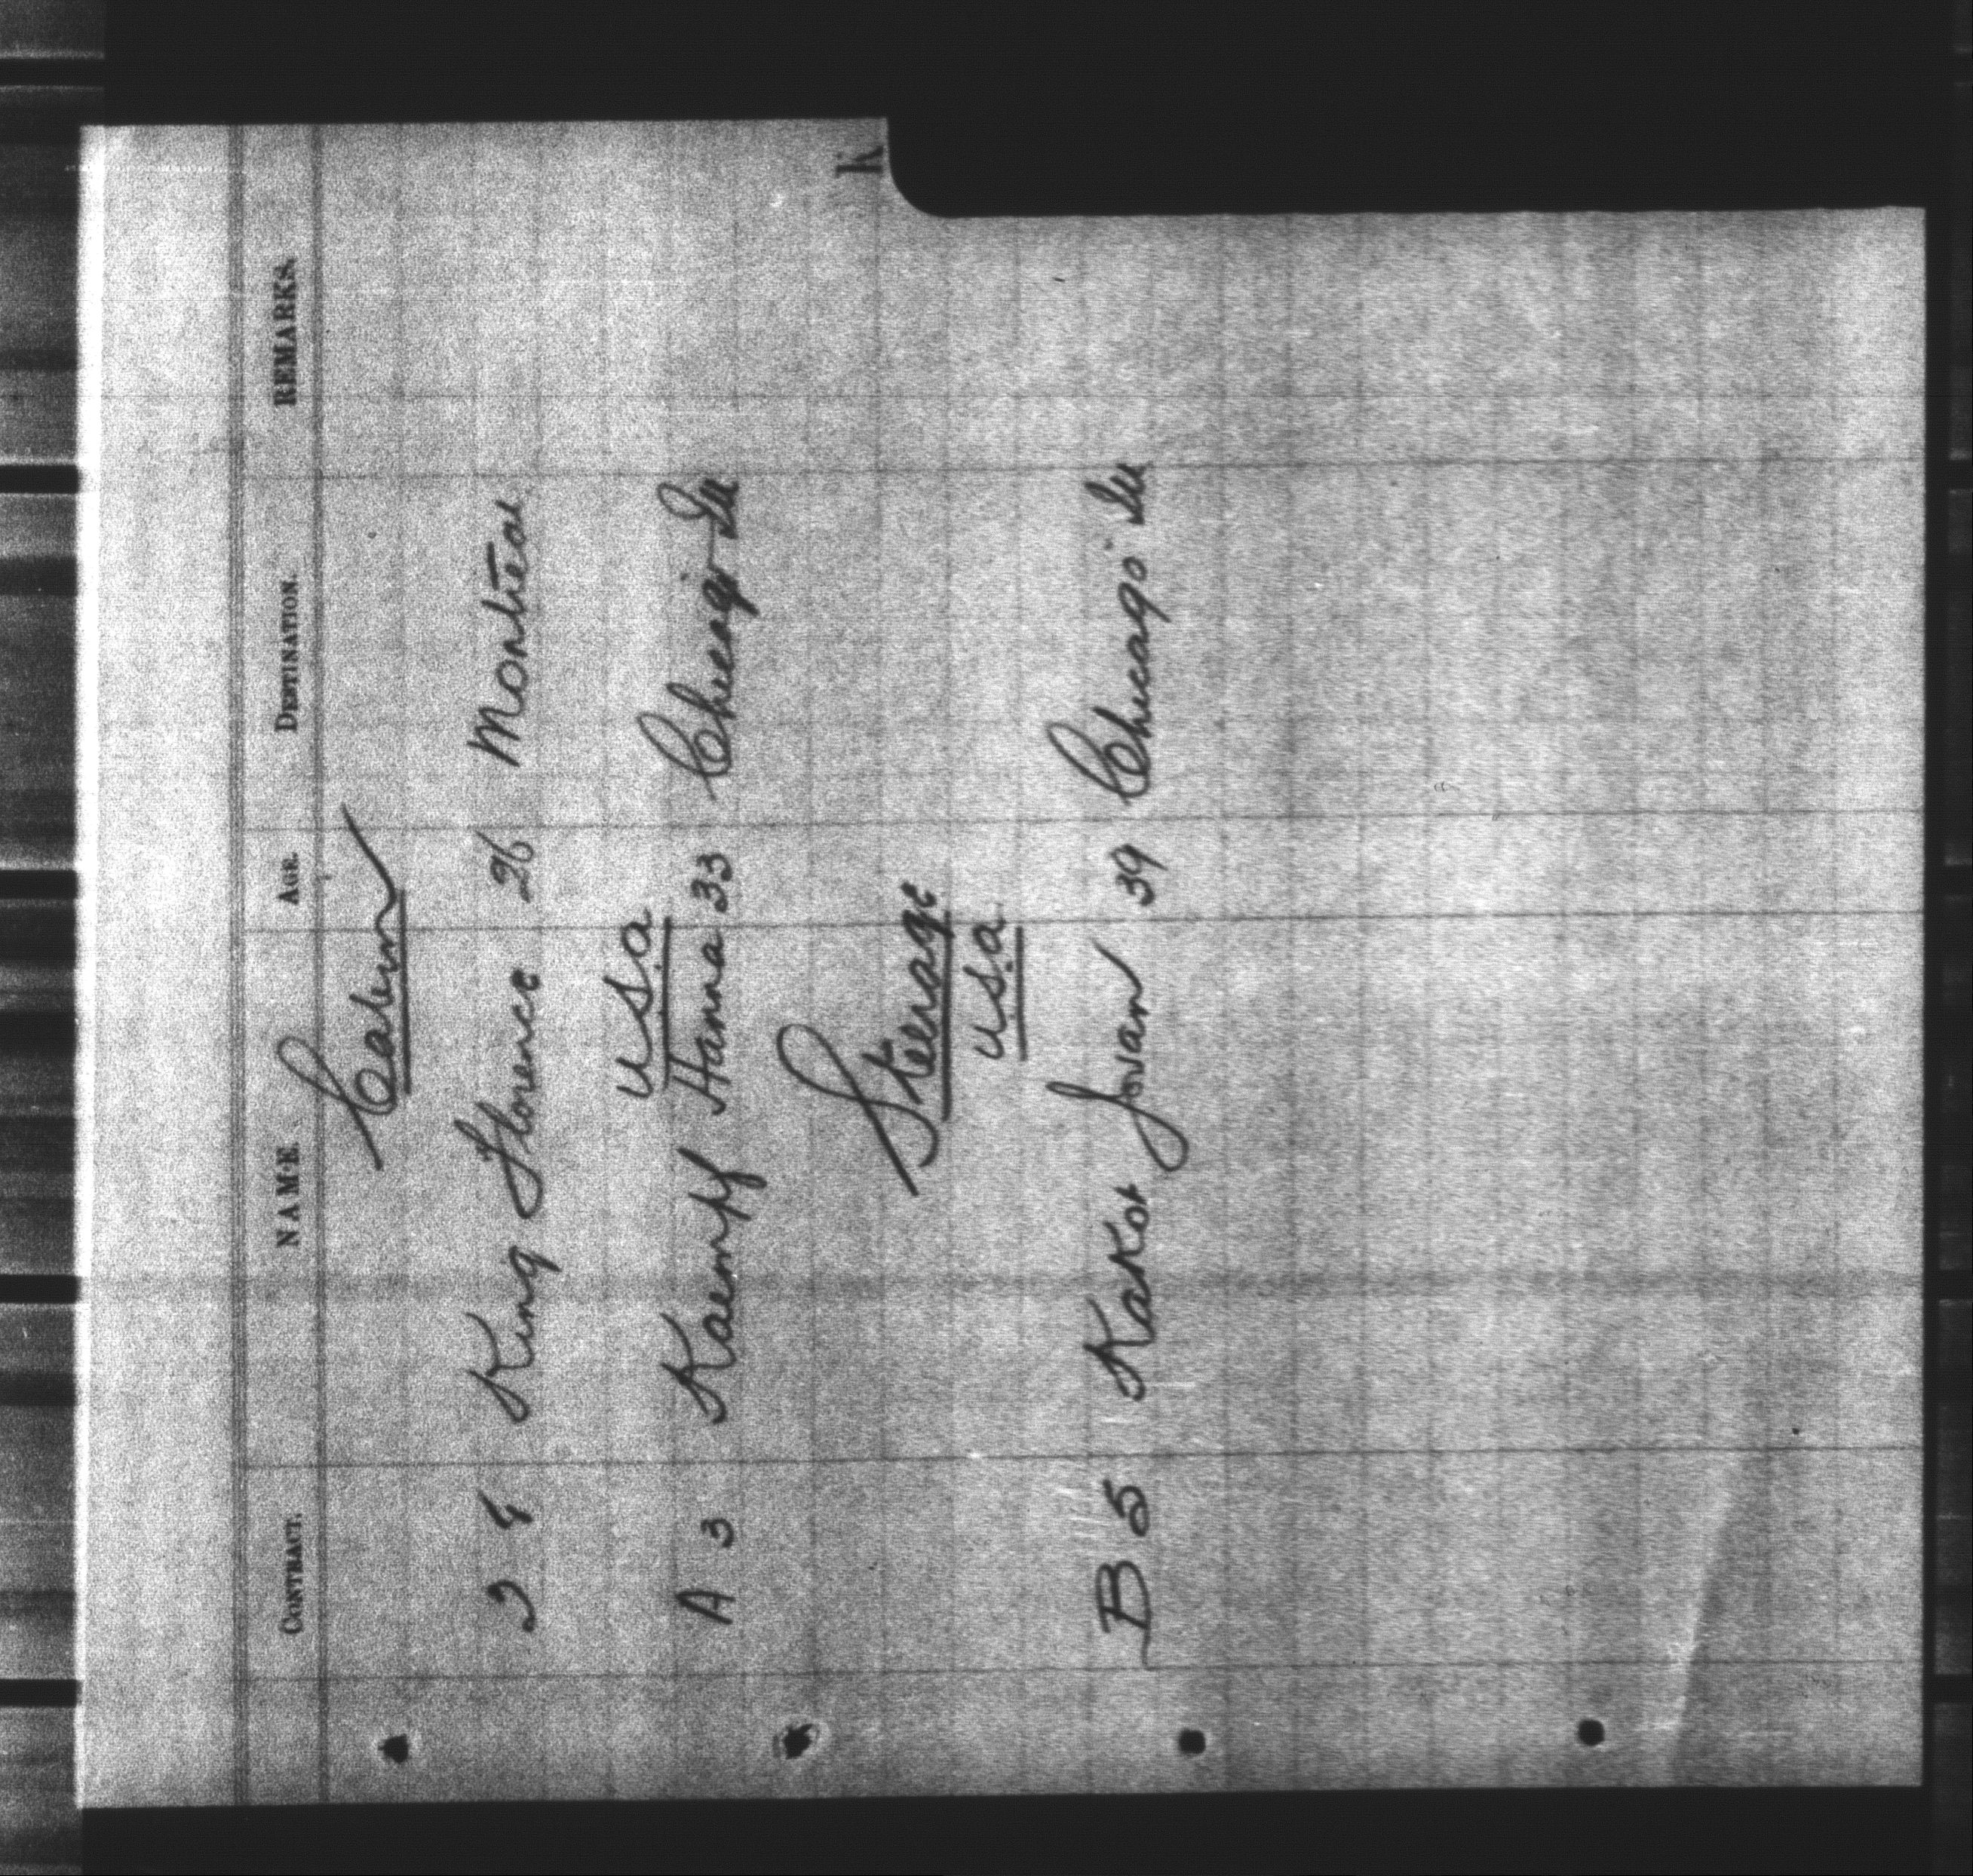 K
CONTRACT. NAME. AGE. DESTINATION. REMARKS.
Cabin
King Florence 26 Montreal
U.S.a
A 3 Kaempf Hanna 33 Chicago Ill
Steerage
U.S.a
B 5 Kakot Jovan 39 Chicago Ill